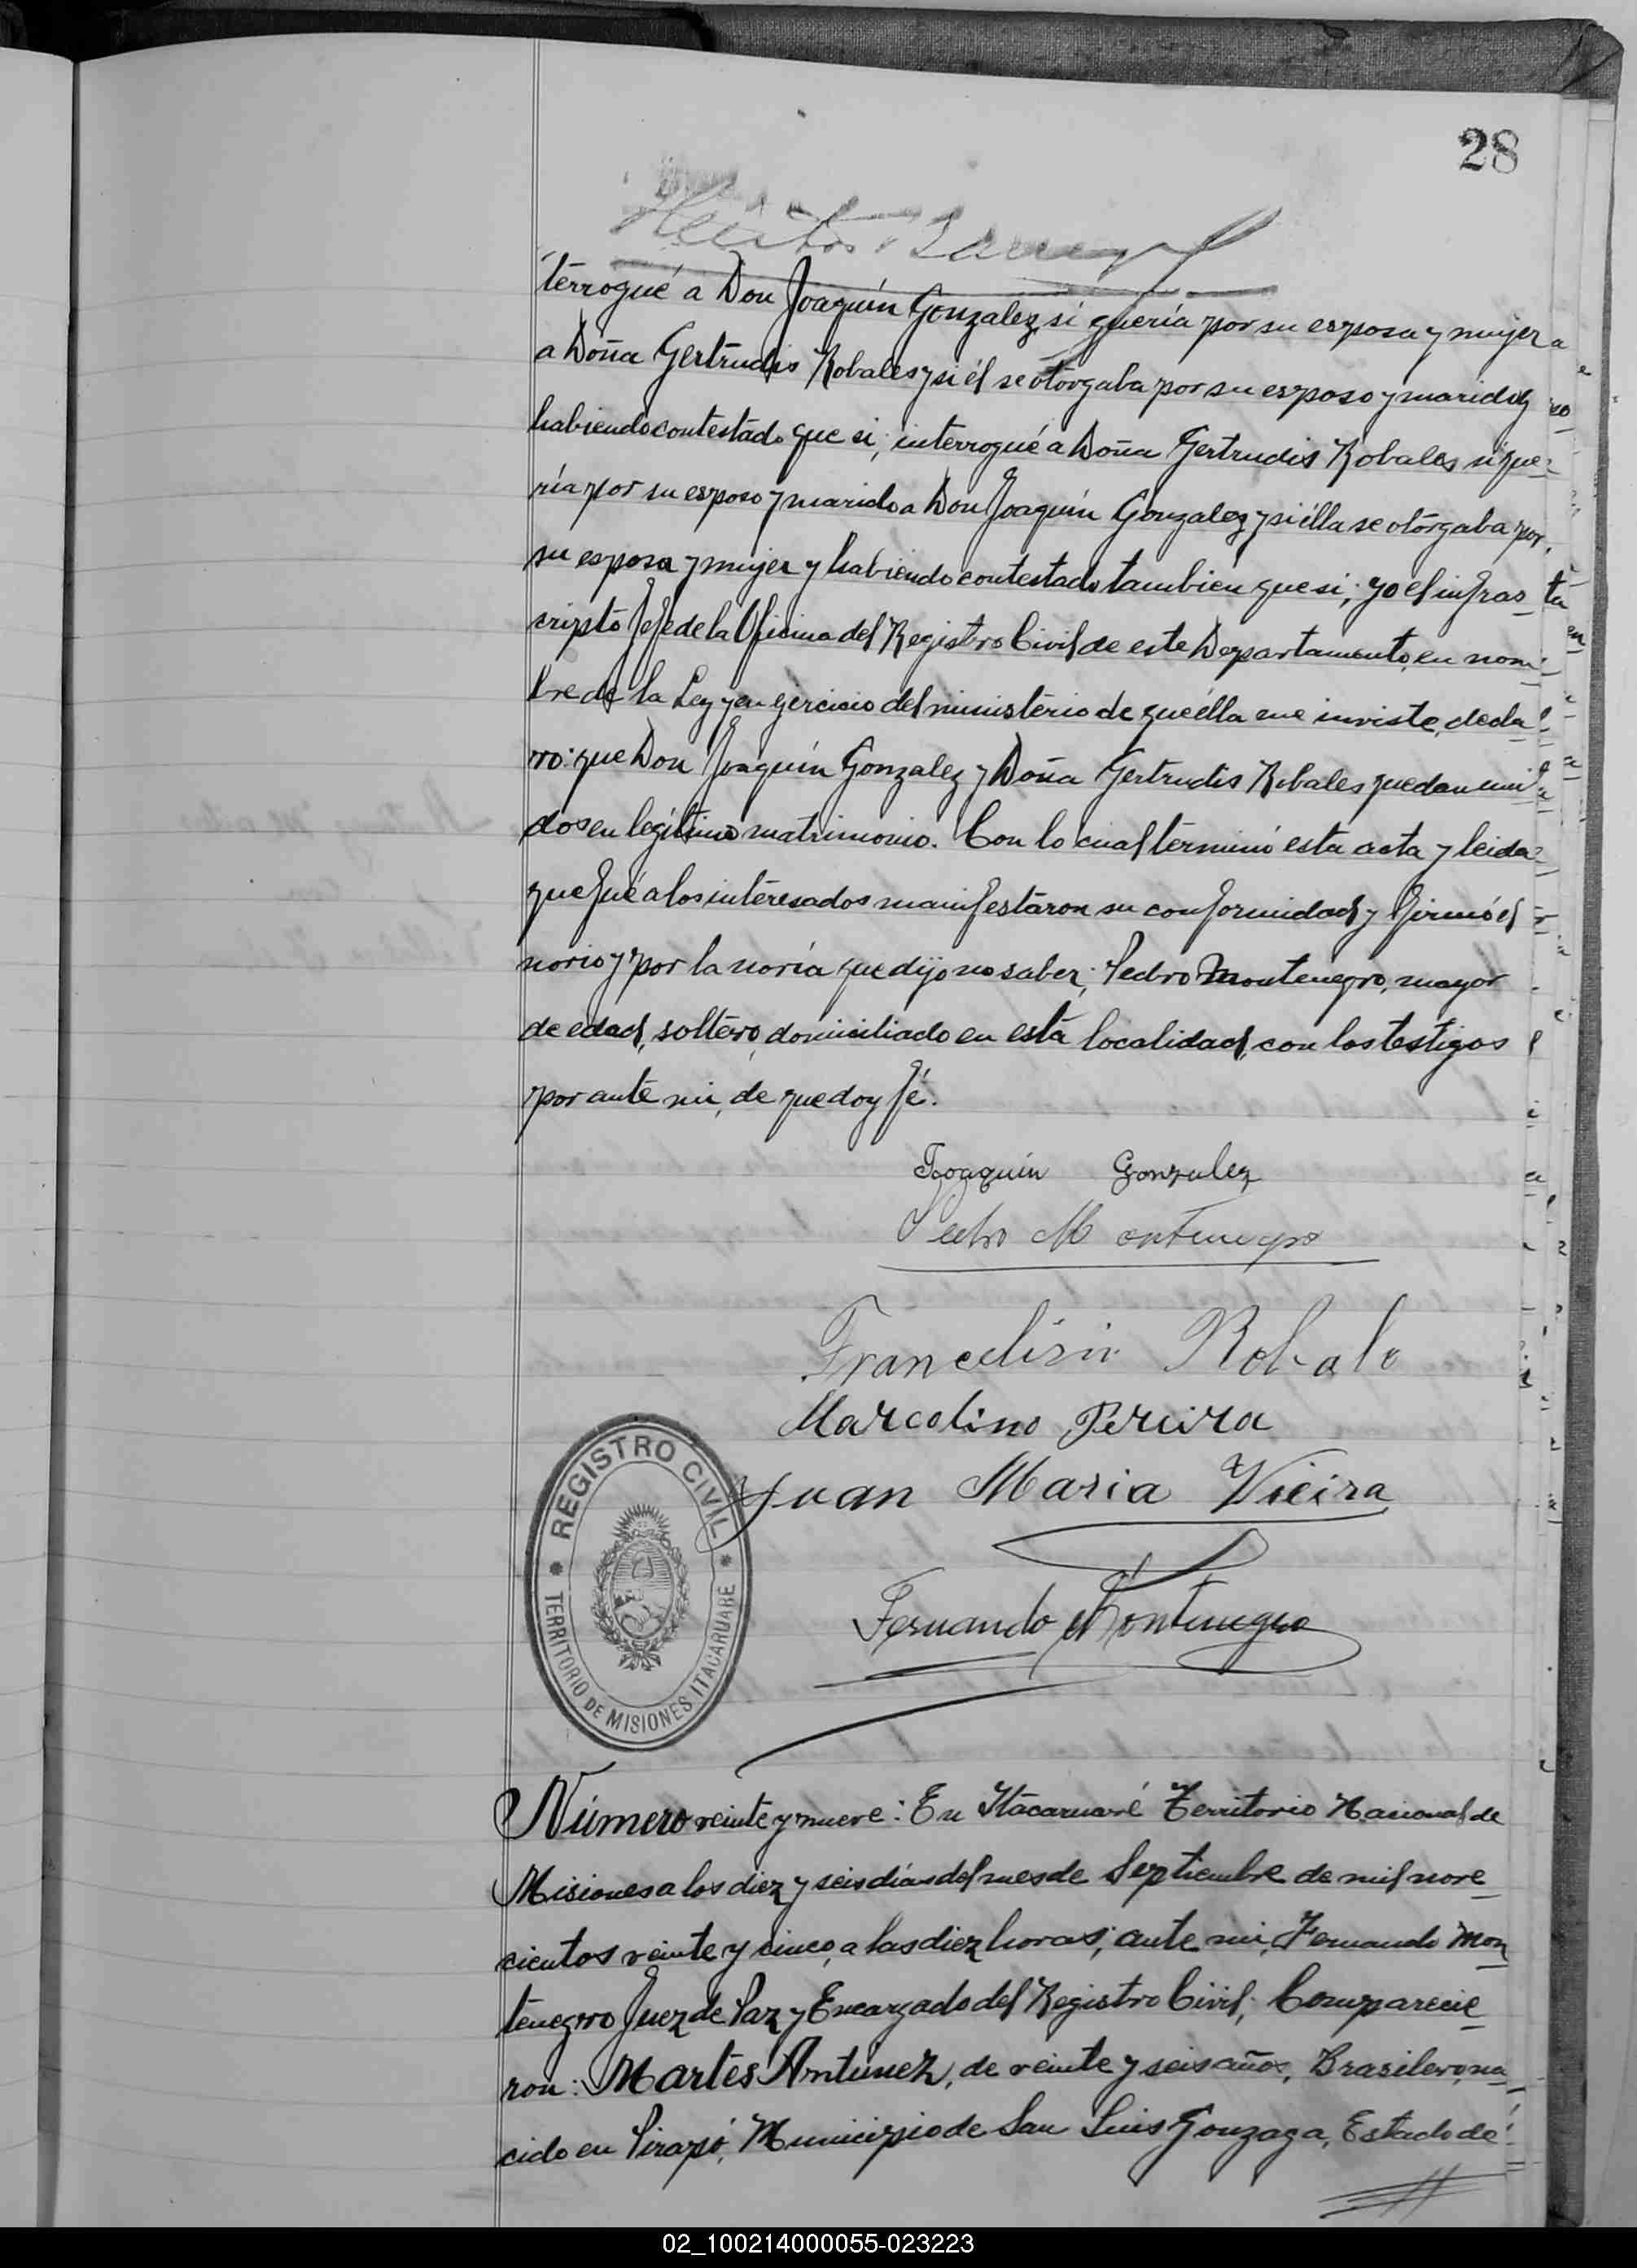 28
terrogué a Don Joaquín Gonzalez, si quería por su esposa y mujer a
a Doña Gertrudis Robales y si él se otorgaba por su esposo y marido y
habiendo contestado que si; interrogué a Doña Gertrudis Robales si que-
ría por su esposo y marido a Don Joaquín Gonzalez y si élla se otorgaba por
su esposa y mujer y habiendo contestado tambien que si; yo el infras
cripto Jefe de la Oficina del Registro Civil de este Departamento, en nom-
bre de la Ley y en ejercicio del ministerio de que élla me inviste, decla
ro: que Don Joaquín Gonzalez y Doña Gertrudis Robales quedan uni
dos en legítimo matrimonio. Con lo cual terminó esta acta y leida
que fué a los interesados manifestaron su conformidad y firmó el
novio y por la novia que dijo no saber; Pedro Montenegro, mayor
de edad, soltero, domiciliado en esta localidad, con los testigos
por ante mi, de que doy fé.
Joaquín Gonzalez
Pedro Montenegro
Robalo
Marcolino Pereira
Juan Maria Vieira
REGISTRO CIVIL
TERRITORIO DE MISIONES ITACARUARE
Fernando Montenegro
Número veinte y nueve: En Itacaruaré Territorio Nacional de
Misiones a los diez y seis días del mes de Septiembre de mil nove
cientos veinte y cinco, a las diez horas; ante mi, Fernando Mon
tenegro Juez de Paz y Encargado del Registro Civil; Comparecie
ron: Martes Antunez, de veinte y seis años, Brasilero, na
cido en Pirapó, Municipio de San Luis Gonzaga, Estado de
02_100214000055-023223